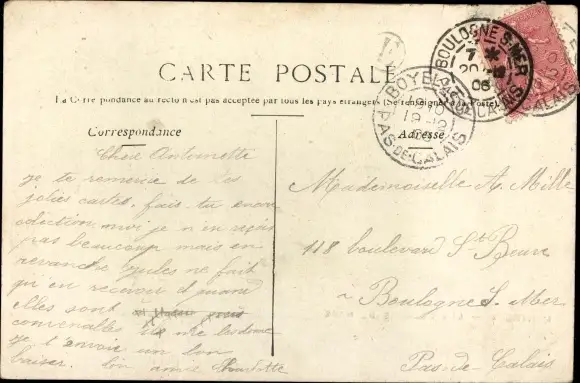 CARTE POSTALE
La Corre pondance au recto n'est pas acceptée par tous les pays étrangers (Se renseigner à la Poste).
Correspondance
Adresse
BOULOGNE S-MER
7 *
20
06
BOYELLES
19
PAS-DE-CALAIS
CALAIS
Chère Antoinette
je te remercie de tes
jolies cartes. fais-tu encor
colection, moi je n'en reçois
pas beaucoup mais en
revanche Jules ne fait
qu'en recevoir et quand
elles sont
convenables il me les donne
je t'envoie un bon
baiser. ton amie Charlotte
Mademoiselle A. Mille
118 boulevard Ste Beuve
a Boulogne S. Mer
Pas-de-Calais